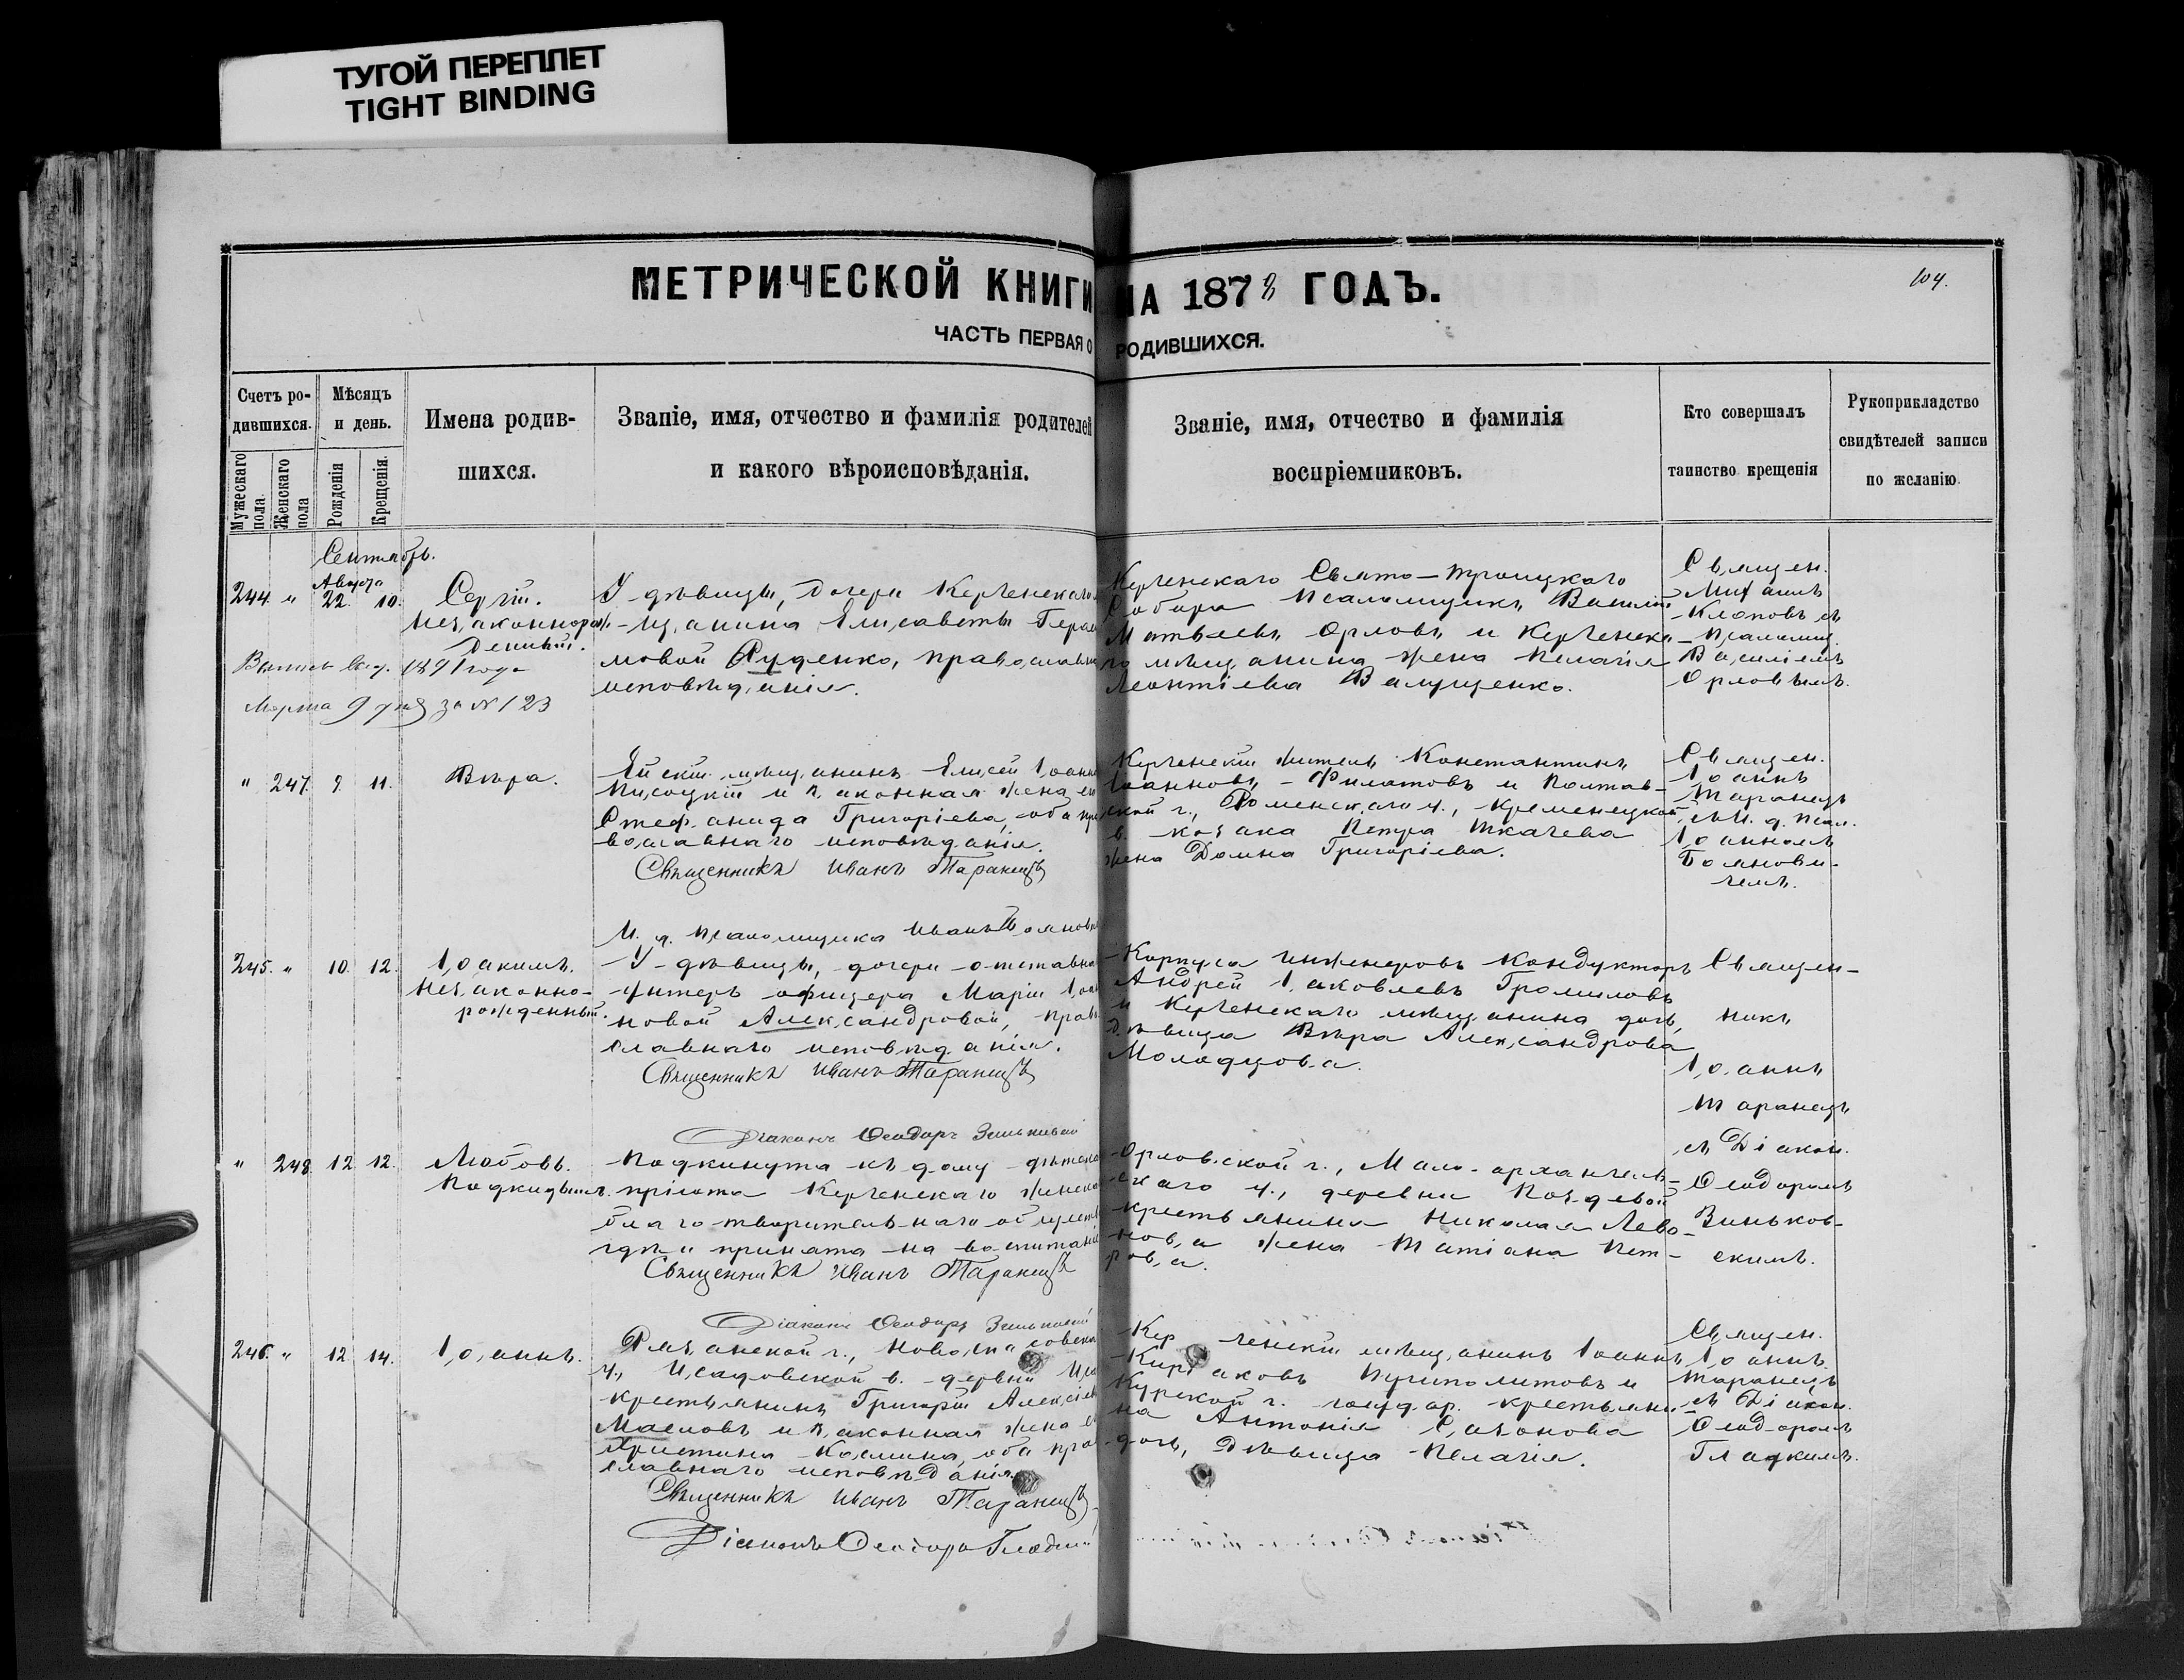 ТУГОЙ ПЕРЕПЛЕТ
TIGHT BINDING
МЕТРИЧЕСКОЙ КНИГИ НА 1878 ГОДЪ.
104.
ЧАСТЬ ПЕРВАЯ О РОДИВШИХСЯ.
Счетъ ро-
дившихся.
Мужескаго пола.
Женскаго пола
Мѣсяцъ
и день.
Рожденія
Крещенія.
Имена родив-
шихся.
Званіе, имя, отчество и фамилія родителей
и какого вѣроисповѣданія.
Званіе, имя, отчество и фамилія
воспріемниковъ.
Кто совершалъ
таинство крещенія
Рукоприкладство
свидѣтелей записи
по желанію.
Сентябрь.
244. "
Августа
22. 10.
Сергій.
Незаконнорож-
денный.
Марта 9 дня за № 123
У дѣвицы, дочери Керченскаго
мѣщанина Елисаветы Гера
мовой Руденко, православна
исповѣданія.
Керченскаго Свято-Троицкаго
Собора псаломщикъ Василій
Матвѣевъ Орловъ и Керченска-
го мѣщанина жена Пелагія
Леонтіева Ващенко.
Священ.
Михаилъ
Клоповъ съ
псаломщ.
Василіемъ
Орловымъ.
" 247. 9. 11.
Вѣра.
Ейскій мѣщанинъ Елисей Іоанн
Писоцкій и законная жена ег
Стефанида Григоріева, оба пра
вославнаго исповѣданія.
Священникъ Иванъ Таранецъ
И. д. псаломщика Иванъ Боянови
Керченскій житель Константинъ
Іоанновъ Филатовъ и Полтав-
ской г., Роменскаго у., Кременецкой
в. козака Петра Ткачева
жена Домна Григоріева.
Священ.
Іоаннъ
Таранецъ
съ И. д. псал.
Іоанномъ
Боянови-
чемъ.
245. " 10. 12.
Іоакимъ.
Незаконно-
рожденный.
У дѣвицы, дочери отставна
унтеръ офицера Маріи Іоан
новой Александровой, прав
славнаго исповѣданія.
Священникъ Иванъ Таранецъ
Діаконъ Ѳеодоръ Зиньковскій
Корпуса инженеровъ кондукторъ
Андрей Іаковлевъ Громиловъ
и Керченскаго мѣщанина дочь,
дѣвица Вѣра Александрова
Молодцова.
Священ-
никъ
Іоаннъ
Таранецъ
съ Діакон.
Ѳеодоромъ
Зиньков-
скимъ.
" 248. 12. 12.
Любовь.
Подкидышъ.
Подкинута къ дому дѣтска
пріюта Керченскаго женска
благотворительнаго обществ
гдѣ и принята на воспитаніе
Священникъ Иванъ Таранецъ
Діаконъ Ѳеодоръ Зиньковскій
Орловской г., Мало-архангель-
скаго у., деревни Поздевой
крестьянина Николая Лево-
нова жена Татіана Пет-
рова.
246. " 12. 14.
Іоаннъ.
Рязанской г., Новоспасовска
у., Исадовской в. дервни Иса
крестьянинъ Григорій Алексіев
Масловъ и законная жена ег
Христина Космина, оба пра
славнаго исповѣданія.
Священникъ Иванъ Таранецъ
Діаконъ Ѳеодоръ Гладкій
Керченскій мѣщанинъ Іоаннъ
Киріаковъ Ипполитовъ и
Курской г. государ. крестьяни-
на Антонія Сазонова
дочь, дѣвица Пелагія.
Священ.
Іоаннъ
Таранецъ
съ Діакон.
Ѳеодоромъ
Гладкимъ.